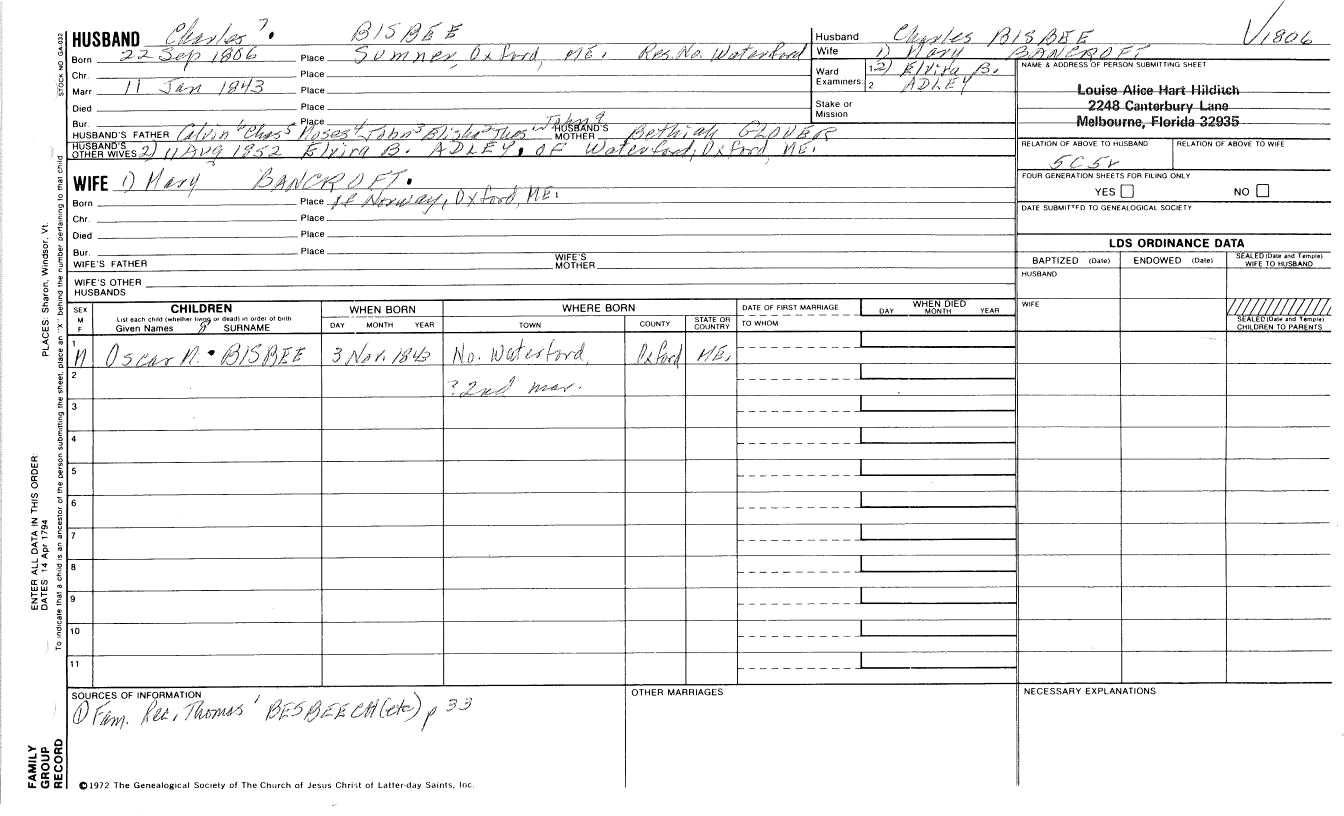 HUSBAND Charles 7. BISBEE
Born 22 Sep 1806 Place Sumner, Oxford, ME. Res. No. Waterford
Chr. Place
Marr 11 Jan 1843 Place
Died Place
Bur. Place
HUSBAND'S FATHER Calvin 6 Chas 5 Moses 4 John 3 Elisha 2 Thos HUSBAND'S MOTHER Bethiah GLOVER
HUSBAND'S OTHER WIVES 2) 11 AUG 1852 Elvira B. ADLEY, OF Waterford, Oxford, ME.
WIFE 1) Mary BANCROFT.
Born Place of Norway, Oxford, ME.
Chr. Place
Died Place
Bur. Place
WIFE'S FATHER WIFE'S MOTHER
WIFE'S OTHER HUSBANDS
Husband Charles BISBEE V1806
Wife 1) Mary BANCROFT
Ward Examiners: 1 2) Elvira B.
2 ADLEY
Stake or Mission
NAME & ADDRESS OF PERSON SUBMITTING SHEET
Louise Alice Hart Hilditch
2248 Canterbury Lane
Melbourne, Florida 32935
RELATION OF ABOVE TO HUSBAND RELATION OF ABOVE TO WIFE
5C5r
FOUR GENERATION SHEETS FOR FILING ONLY
YES NO
DATE SUBMITTED TO GENEALOGICAL SOCIETY
LDS ORDINANCE DATA
BAPTIZED (Date) ENDOWED (Date) SEALED (Date and Temple) WIFE TO HUSBAND
HUSBAND
WIFE
SEALED (Date and Temple) CHILDREN TO PARENTS
SEX M F
CHILDREN
List each child (whether living or dead) in order of birth
Given Names SURNAME
WHEN BORN
DAY MONTH YEAR
WHERE BORN
TOWN COUNTY STATE OR COUNTRY
DATE OF FIRST MARRIAGE
TO WHOM
WHEN DIED
DAY MONTH YEAR
1 M Oscar M. BISBEE 3 Nov. 1843 No. Waterford, Oxford ME.
2 ? 2nd mar.
3
4
5
6
7
8
9
10
11
SOURCES OF INFORMATION
① Fam. Rec, Thomas 1 BESBEECH (etc) p 33
OTHER MARRIAGES
NECESSARY EXPLANATIONS
©1972 The Genealogical Society of The Church of Jesus Christ of Latter-day Saints, Inc.
STOCK NO. GA-032
PLACES: Sharon, Windsor, Vt.
To indicate that a child is an ancestor of the person submitting the sheet, place an "X" behind the number pertaining to that child
ENTER ALL DATA IN THIS ORDER
DATES 14 Apr 1794
FAMILY GROUP RECORD